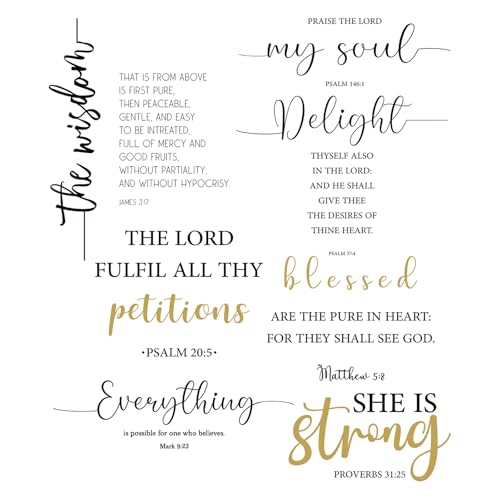 the wisdom
THAT IS FROM ABOVE
IS FIRST PURE,
THEN PEACEABLE,
GENTLE, AND EASY
TO BE INTREATED,
FULL OF MERCY AND
GOOD FRUITS,
WITHOUT PARTIALITY,
AND WITHOUT HYPOCRISY.
JAMES 3:17
PRAISE THE LORD
my soul
PSALM 146:1
Delight
THYSELF ALSO
IN THE LORD:
AND HE SHALL
GIVE THEE
THE DESIRES OF
THINE HEART.
PSALM 37:4
THE LORD
FULFIL ALL THY
petitions
•PSALM 20:5•
blessed
ARE THE PURE IN HEART:
FOR THEY SHALL SEE GOD.
Matthew 5:8
Everything
is possible for one who believes.
Mark 9:23
SHE IS
strong
PROVERBS 31:25